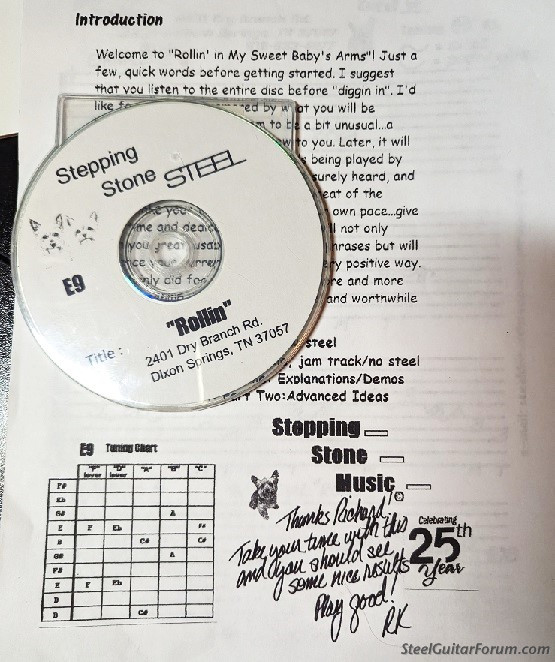 Introduction
Welcome to "Rollin' in My Sweet Baby's Arms"! Just a
few, quick words before getting started. I suggest
that you listen to the entire disc before "diggin in". I'd
like by what you will be
to be a bit unusual...a
to you. Later, it will
being played by
heard, and
of the
own pace...give
not only
but will
positive way.
and more
and worthwhile
steel
jam track/no steel
Explanations/Demos
Two:Advanced Ideas
Stepping
Stone STEEL
E9
"Rollin"
Title :
2401 Dry Branch Rd.
Dixon Springs, TN 37057
Stepping
Stone
Music
Thanks Richard!
Take your time with this
and you should see
some nice results
Play good!
RK
Celebrating
25th
Year
E9 Tuning Chart
lever lever "A" "B" "C"
F#
Eb
G# A
E F Eb F#
B C# C#
G# A
F#
E F Eb
D
B C#
SteelGuitarForum.com